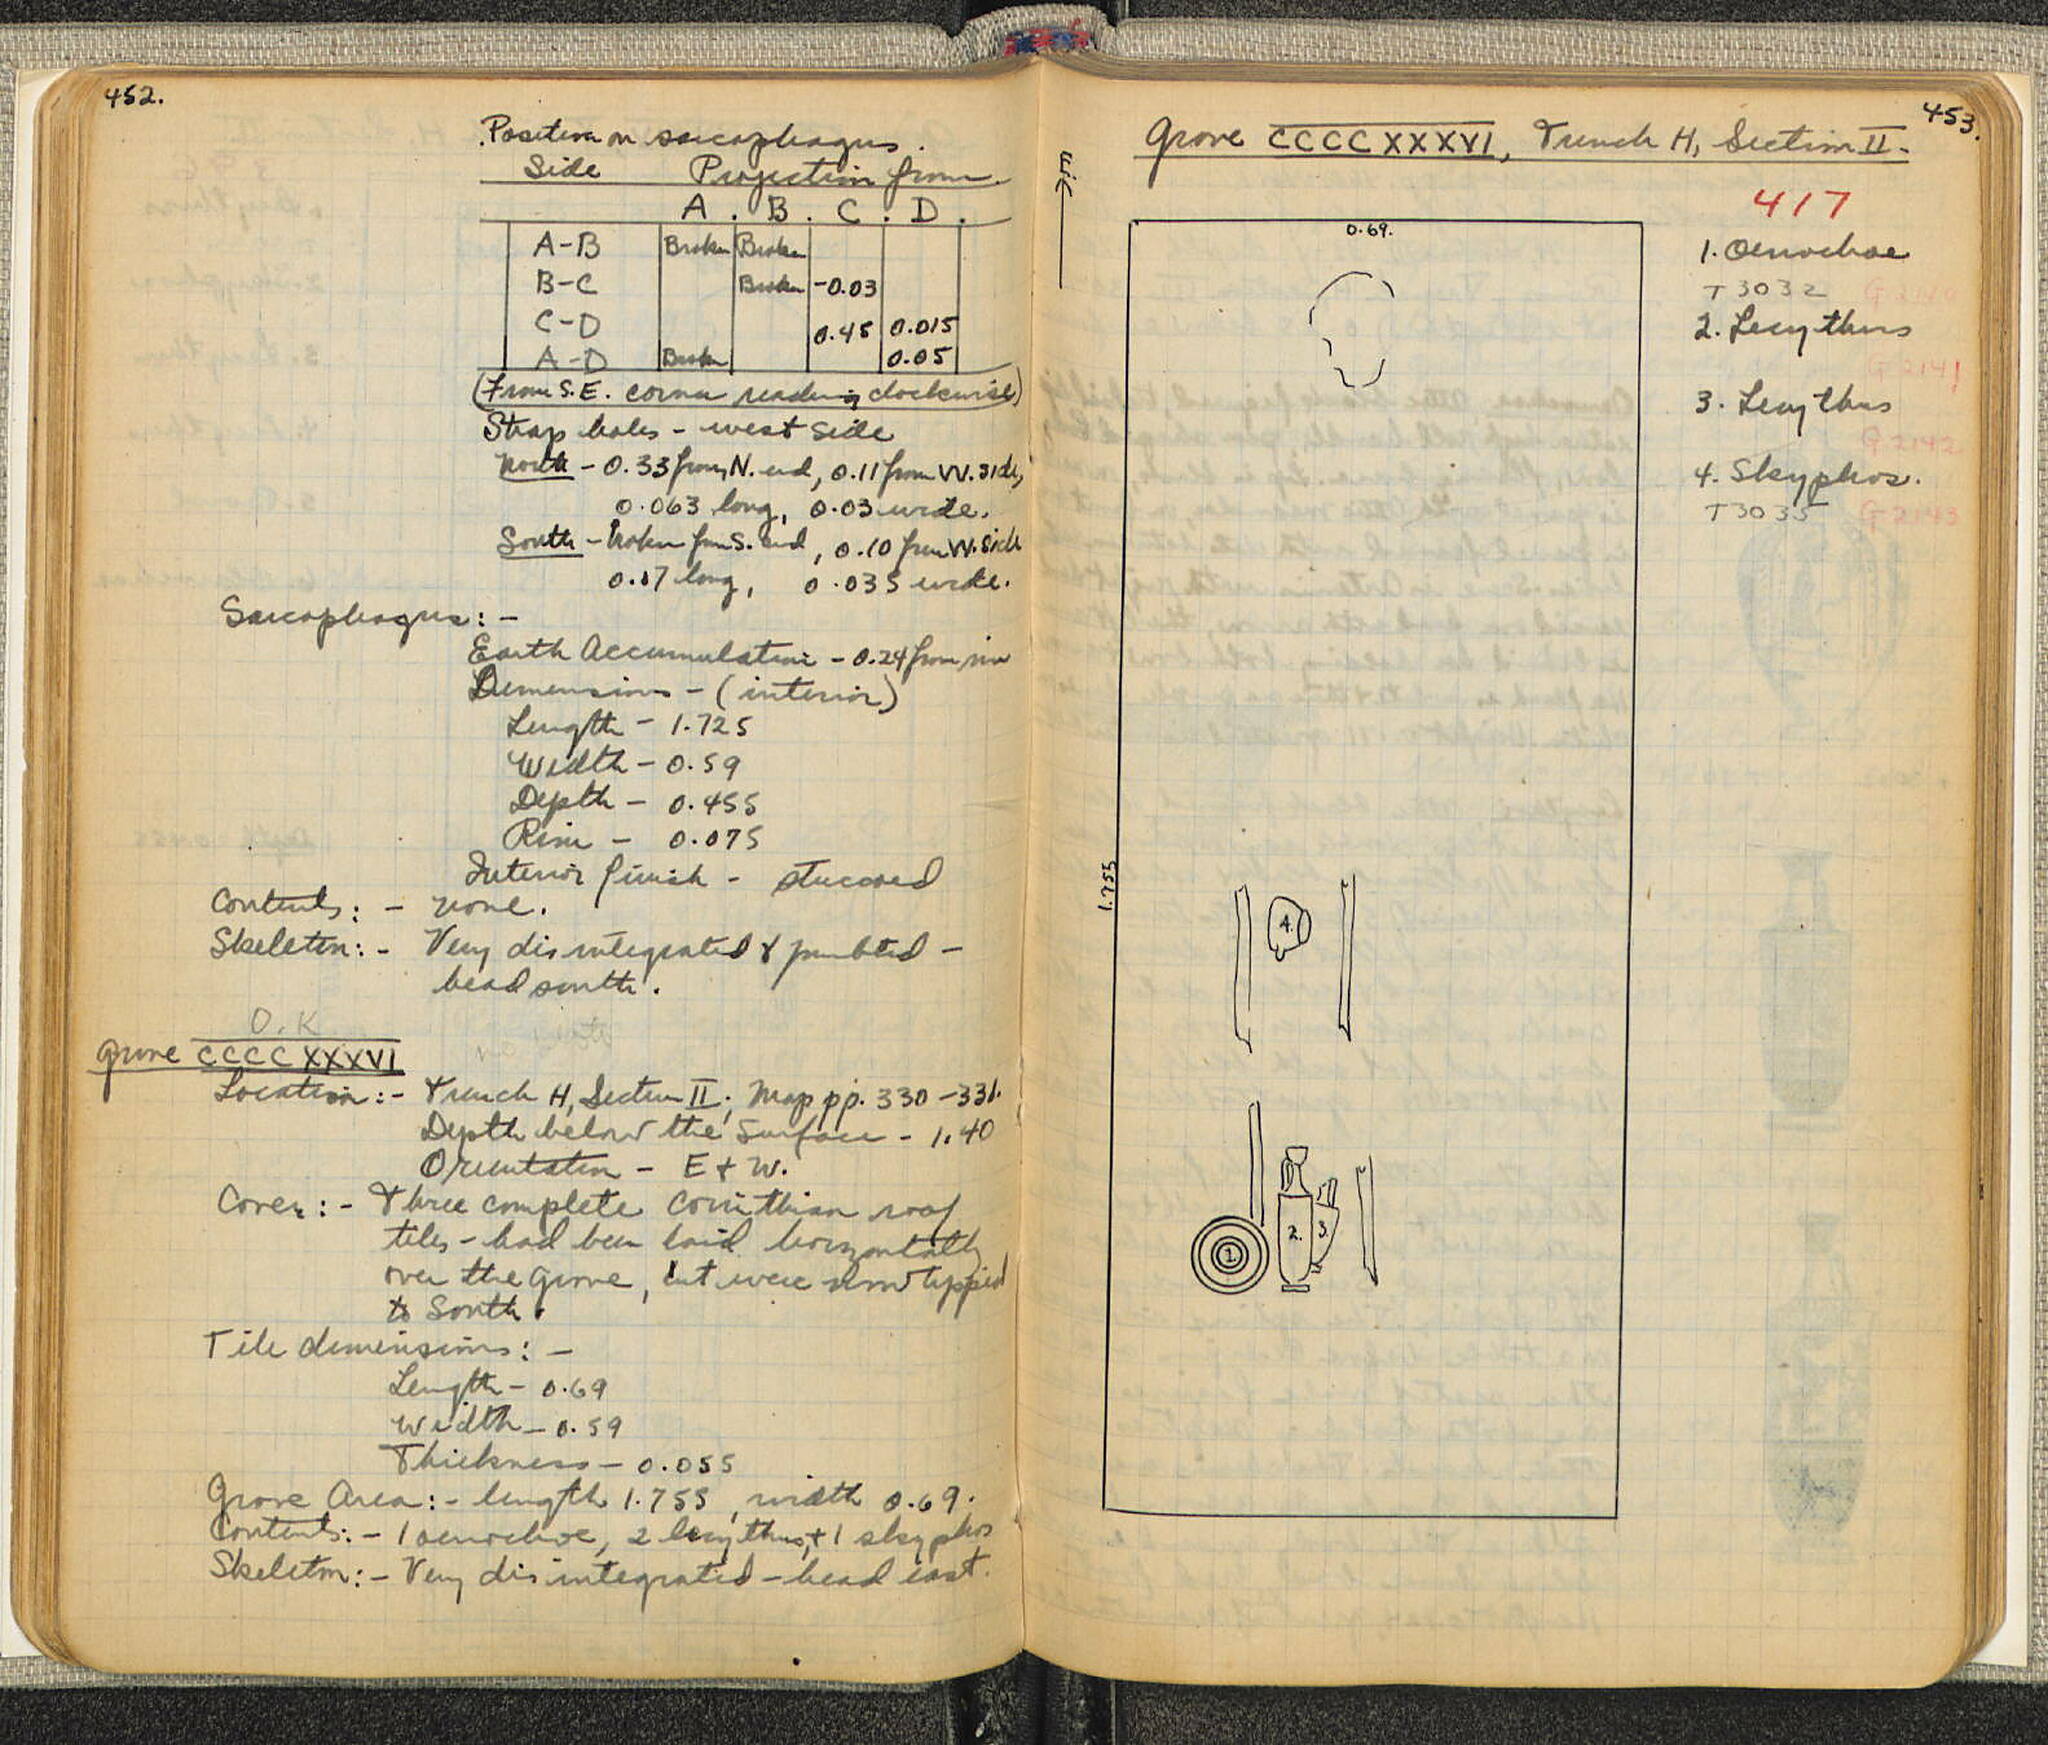 452.
Position on sarcophagus.
Side Projection from
A. B. C. D.
A-B Broken Broken
B-C Broken -0.03
C-D 0.45 0.015
A-D Broken 0.05
(From S.E. corner reading clockwise)
Strap holes - west side
North - 0.33 from N. end, 0.11 from W. side,
0.063 long, 0.03 wide.
South - broken from S. end, 0.10 from W. side
0.07 long, 0.035 wide.
Sarcophagus: -
Earth Accumulation - 0.24 from rim
Dimensions - (interior)
Length - 1.725
Width - 0.59
Depth - 0.455
Rim - 0.075
Interior finish - stuccoed
Contents: - none.
Skeleton: - Very disintegrated & jumbled -
head south.
O.K
Grave CCCCXXXVI
Location: - Trench H, Section II; Map pp. 330-331.
Depth below the surface - 1.40
Orientation - E + W.
Cover: - Three complete Corinthian roof
tiles - had been laid horizontally
over the grave, but were now tipped
to South.
Tile dimensions: -
Length - 0.69
Width - 0.59
Thickness - 0.055
Grave Area: - length 1.755, width 0.69.
Contents: - 1 oenochoe, 2 lecythus, + 1 skyphos
Skeleton: - Very disintegrated - head east.
453.
Grave CCCCXXXVI, Trench H, Section II.
417
E
0.69.
1.755
1. Oenochoe
T 3032 G 2140
2. Lecythus
G 2141
3. Lecythus
G 2142
4. Skyphos.
T 3035 G 2143
4.
2. 3.
1.